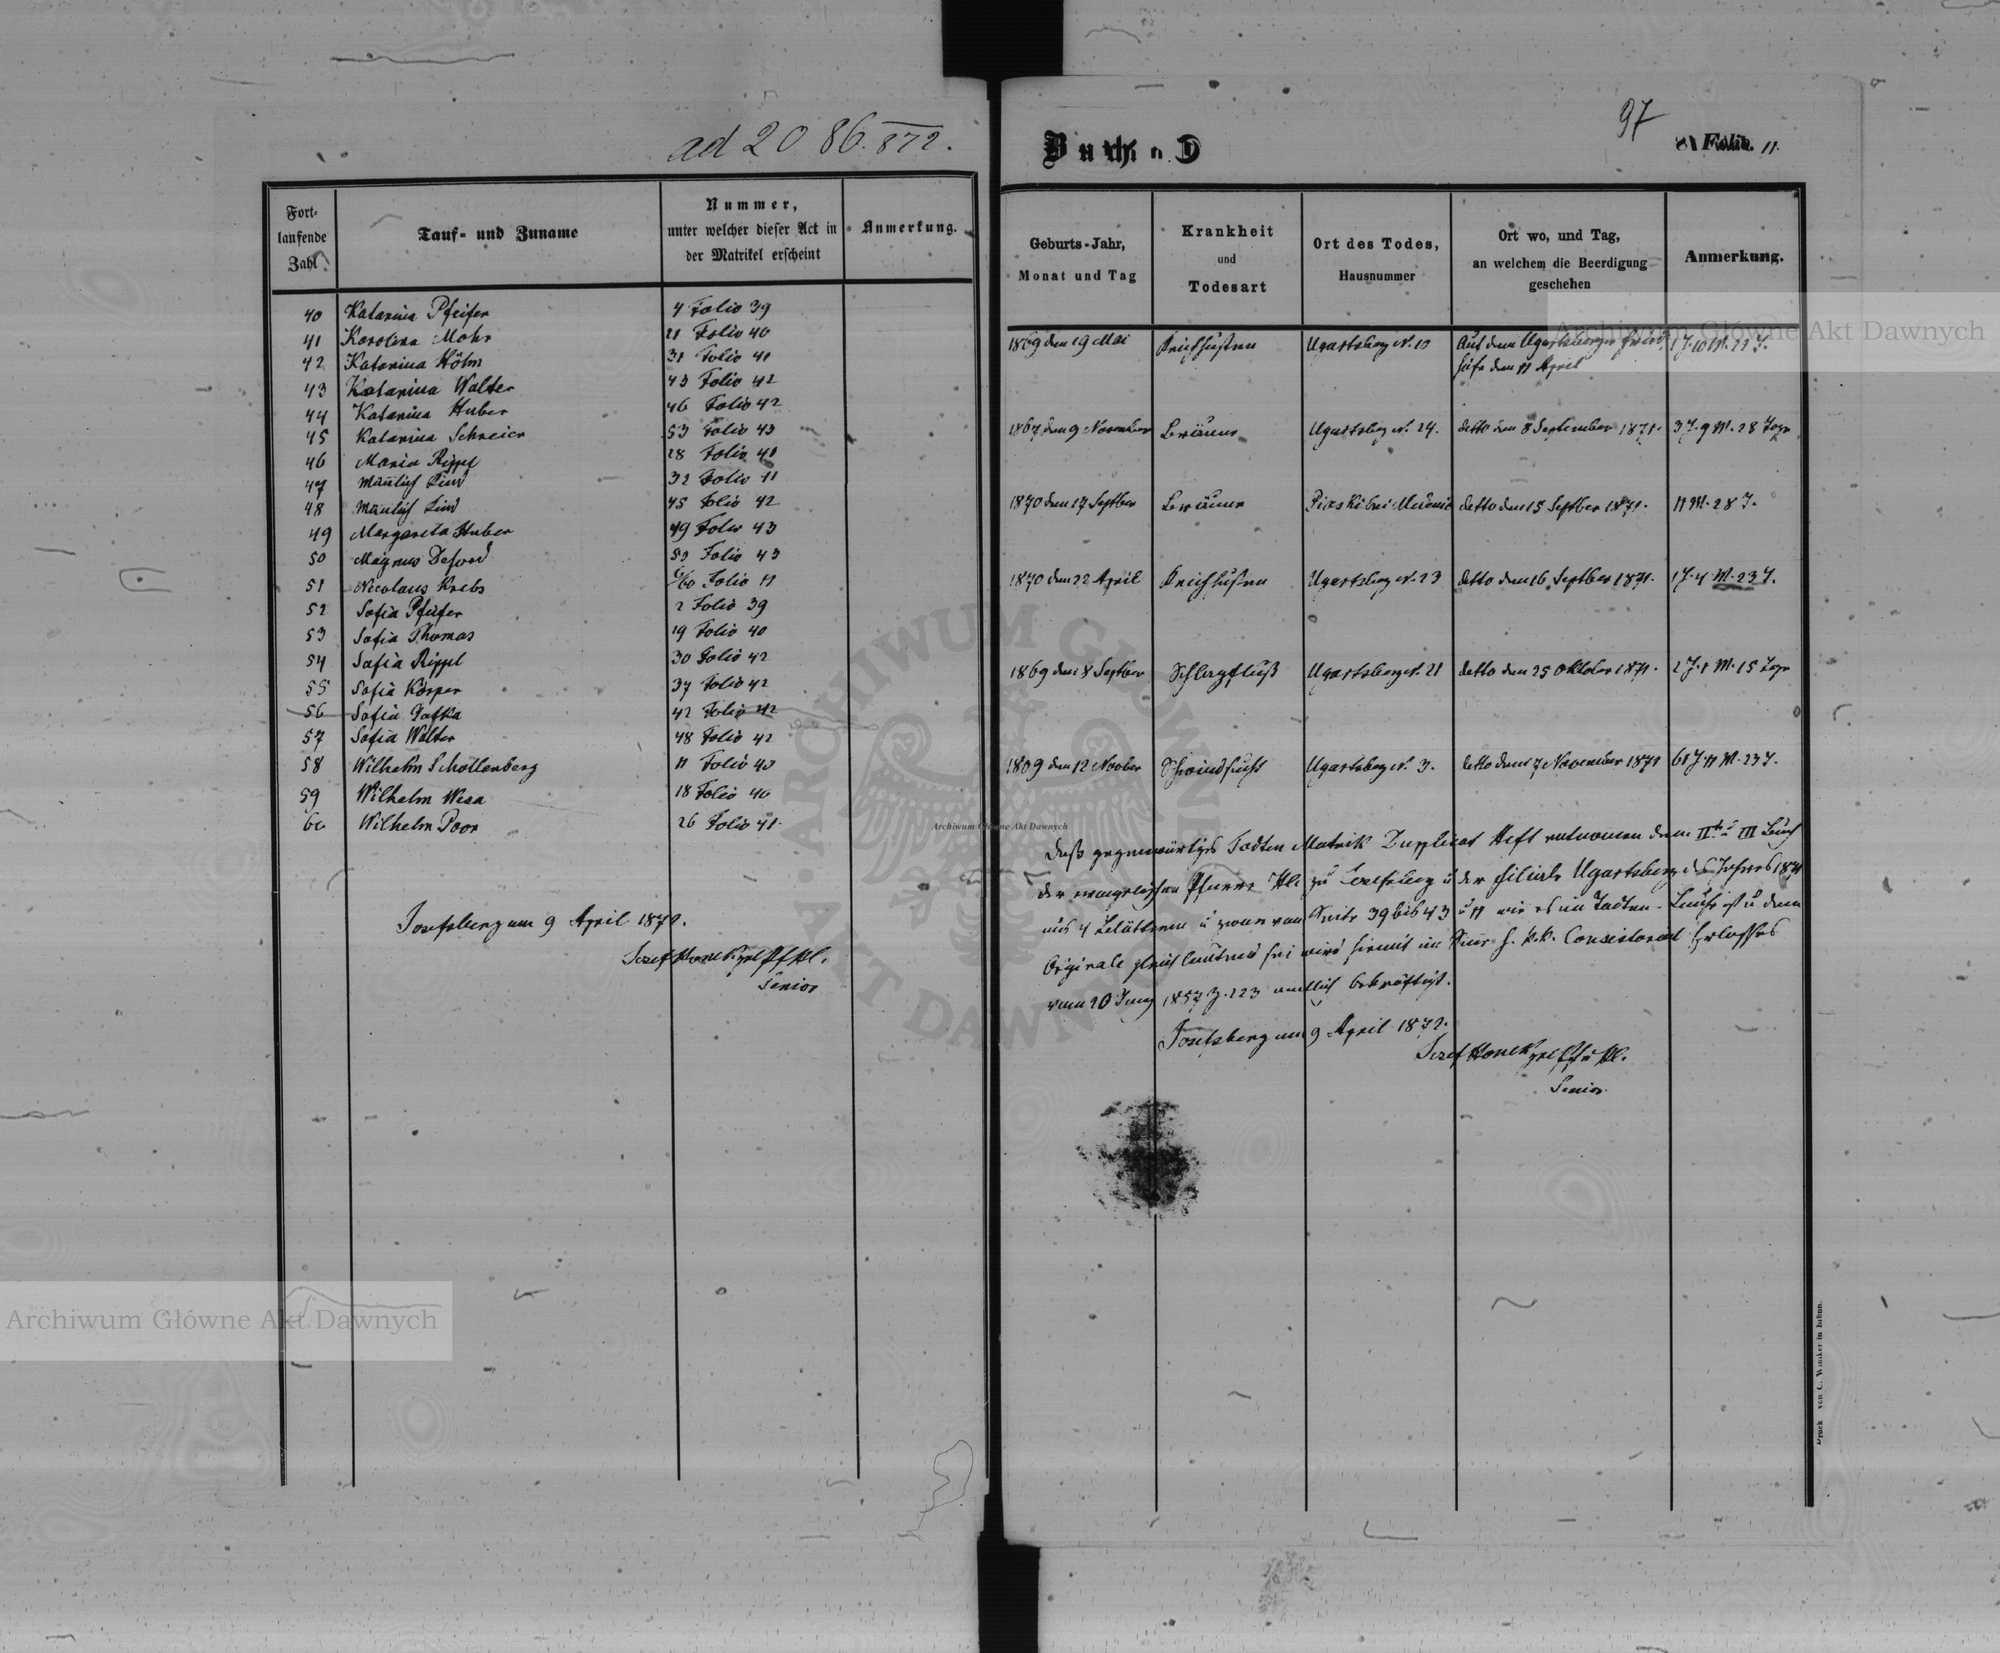 ad 2086.872.
Fort-
laufende
Zahl
Tauf- und Zuname
Nummer,
unter welcher dieser Act in
der Matrikel erscheint
Anmerkung.
40 Katarina Pfeifer 4 Folio 39
41 Karolina Mohr 21 Folio 40
42 Katarina Höhn 31 Folio 41
43 Katarina Walter 43 Folio 42
44 Katarina Huber 46 Folio 42
45 Katarina Schreier 53 Folio 43
46 Maria Rippel 28 Folio 41
47 Mänlich Kind 32 Folio 11
48 Mänlich Kind 45 Folio 42
49 Margareta Huber 49 Folio 43
50 Magnus 50 Folio 43
51 Nicolaus Krebs 6/60 Folio 11
52 Sofia Pfeifer 2 Folio 39
53 Sofia Thomas 19 Folio 40
54 Sofia Rippel 30 Folio 42
55 Sofia Körper 37 Folio 42
56 Sofia Gafka 42 Folio 42
57 Sofia Walter 48 Folio 42
58 Wilhelm Schollenberg 11 Folio 40
59 Wilhelm Wesa 18 Folio 40
60 Wilhelm Poor 26 Folio 41.
Josefsberg am 9 April 1872.
Josef Honek
Senior
97
Buch D
Folio 11.
Geburts-Jahr,
Monat und Tag
Krankheit
und
Todesart
Ort des Todes,
Hausnummer
Ort wo, und Tag,
an welchem die Beerdigung
geschehen
Anmerkung.
1869 den 19 Mai Keichhusten Ugartsberg N. 10 Auf dem Ugartsberger Fried-
hofe den 11 April
1867 den 9 November Bräune Ugartsberg N. 24. detto den 8 September 1871. 3 J. 9 M. 28 Tage
1870 den 17 Septber Bräune detto den 15 Septber 1871. 11 M. 28 T.
1870 den 22 April Keichhusten Ugartsberg N. 23 detto den 16 Septber 1871. 1 J. 4 M. 23 T.
1869 den 8 Septber Schlagfluß Ugartsberg N. 21 detto den 25 Oktober 1871. 2 J. 1 M. 15 Tage
1809 den 12 Nov̅ber Schwindsucht Ugartsberg N. 3. detto den 7 November 1871 61 J. 11 M. 23 T.
Daß gegenwärtiges Todten Matrik Duplicat Heft entnomen dem IIt u III Buch
der evangelischen Pfarre HC zu Josefsberg u der Filiale Ugartsberg des Jahres 1871
aus 4 Blättern u zwar von Seite 39 bis 43 u 11 wie es im Todten-Buche ist u dem
Originale gleich lautend sei wird hiemit im Sinne h. k.k. Consistorial Erlasses
vom 20 Juny 1857 Z. 223 amtlich bekräftigt.
Josefsberg am 9 April 1872.
Josef Honek
Senior
Archiwum Główne Akt Dawnych
Archiwum Główne Akt Dawnych
Archiwum Główne Akt Dawnych
ARCHIWUM GŁÓWNE
AKT DAWNYCH